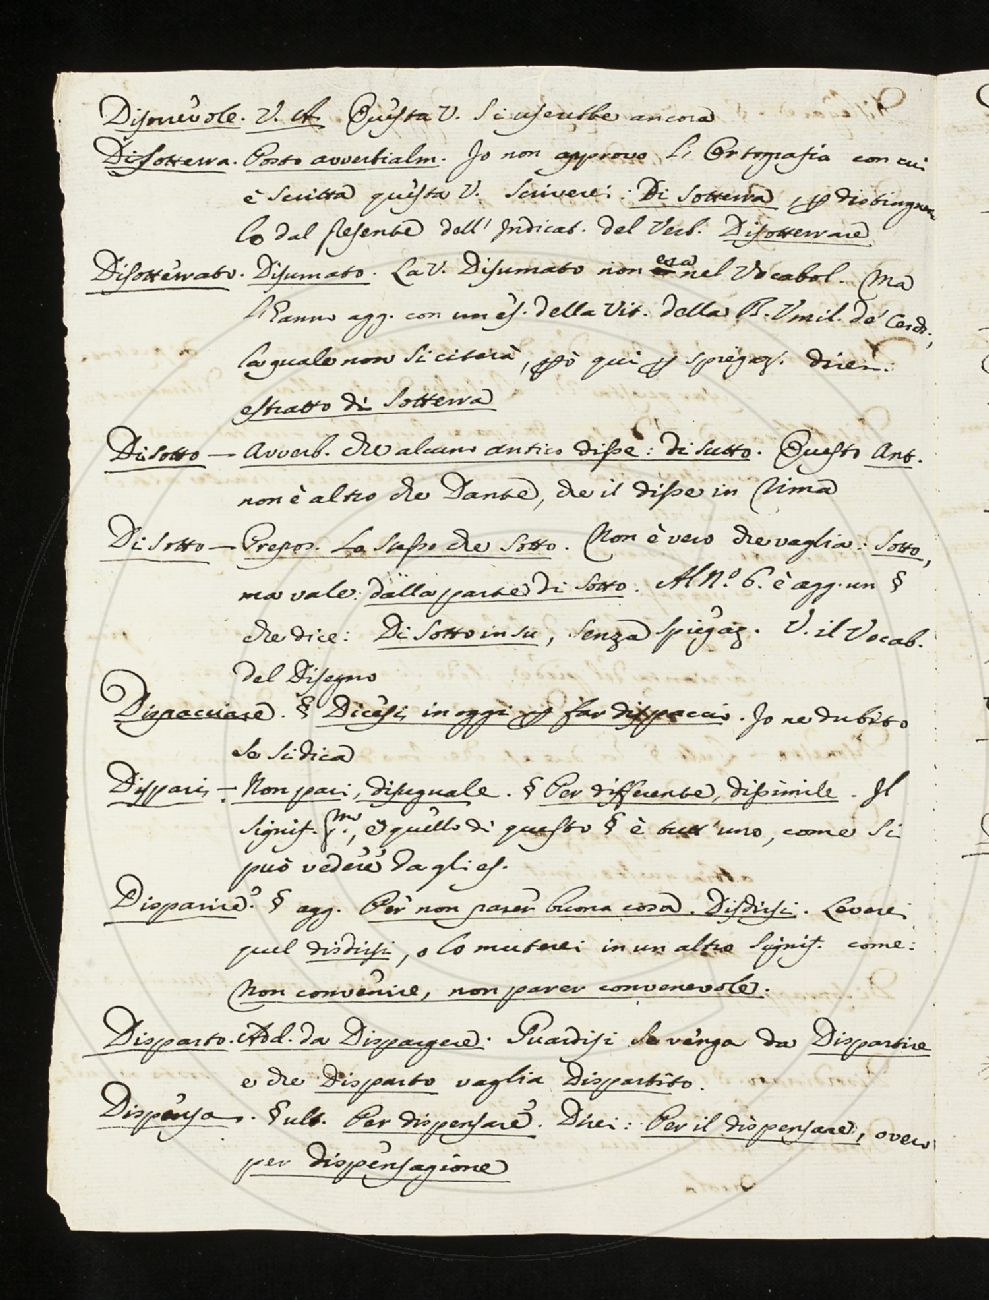 Disonévole. V. A. Questa V. si userebbe ancora
Disotterra. Posto avverbialm. Io non approvo l'Ortografia con cui
è scritta questa V. Scriverei: Di sotterra, p distinguer
lo dal presente dell'Indicat. del Verb. Disotterrare
Disotterrato. Disumato. La V. Disumato non era nel Vocabol. Ma
l'hanno agg. con un es. della Vit. della B. Umil. de' Cerch.,
la quale non si citerà, però qui p spiegaz. direi:
estratto di sotterra
Disotto — Avverb. che alcuno antico disse: di sutto. Questo Ant.
non è altro che Dante, che il disse in Rima
Di sotto — Prepos. Lo stesso che sotto. Non è vero che vaglia: sotto,
ma vale: dalla parte di sotto. Al N.º 6. è agg. un §
che dice: Di sotto in su, senza spiegaz. V. il Vocab.
del Disegno
Dispacciare. § Dicesi in oggi p far dispaccio. Io ne dubito
se si dica
Dispari — Non pari, diseguale. § Per differente, dissimile. Il
signif. pmo., e quello di questo § è tutt'uno, come si
può vedere dagli es.
Disparire. § agg. Per non parer buona cosa. Disdirsi. Leverei
quel disdirsi, o lo muterei in un altro signif. come:
Non convenire, non parer convenevole.
Disparto. Add. da Dispargere. Guardisi se venga da Dispartire
e che Disparto vaglia Dispartito.
Dispensa. § ult. Per dispensare. Direi: Per il dispensare, overo
per dispensagione